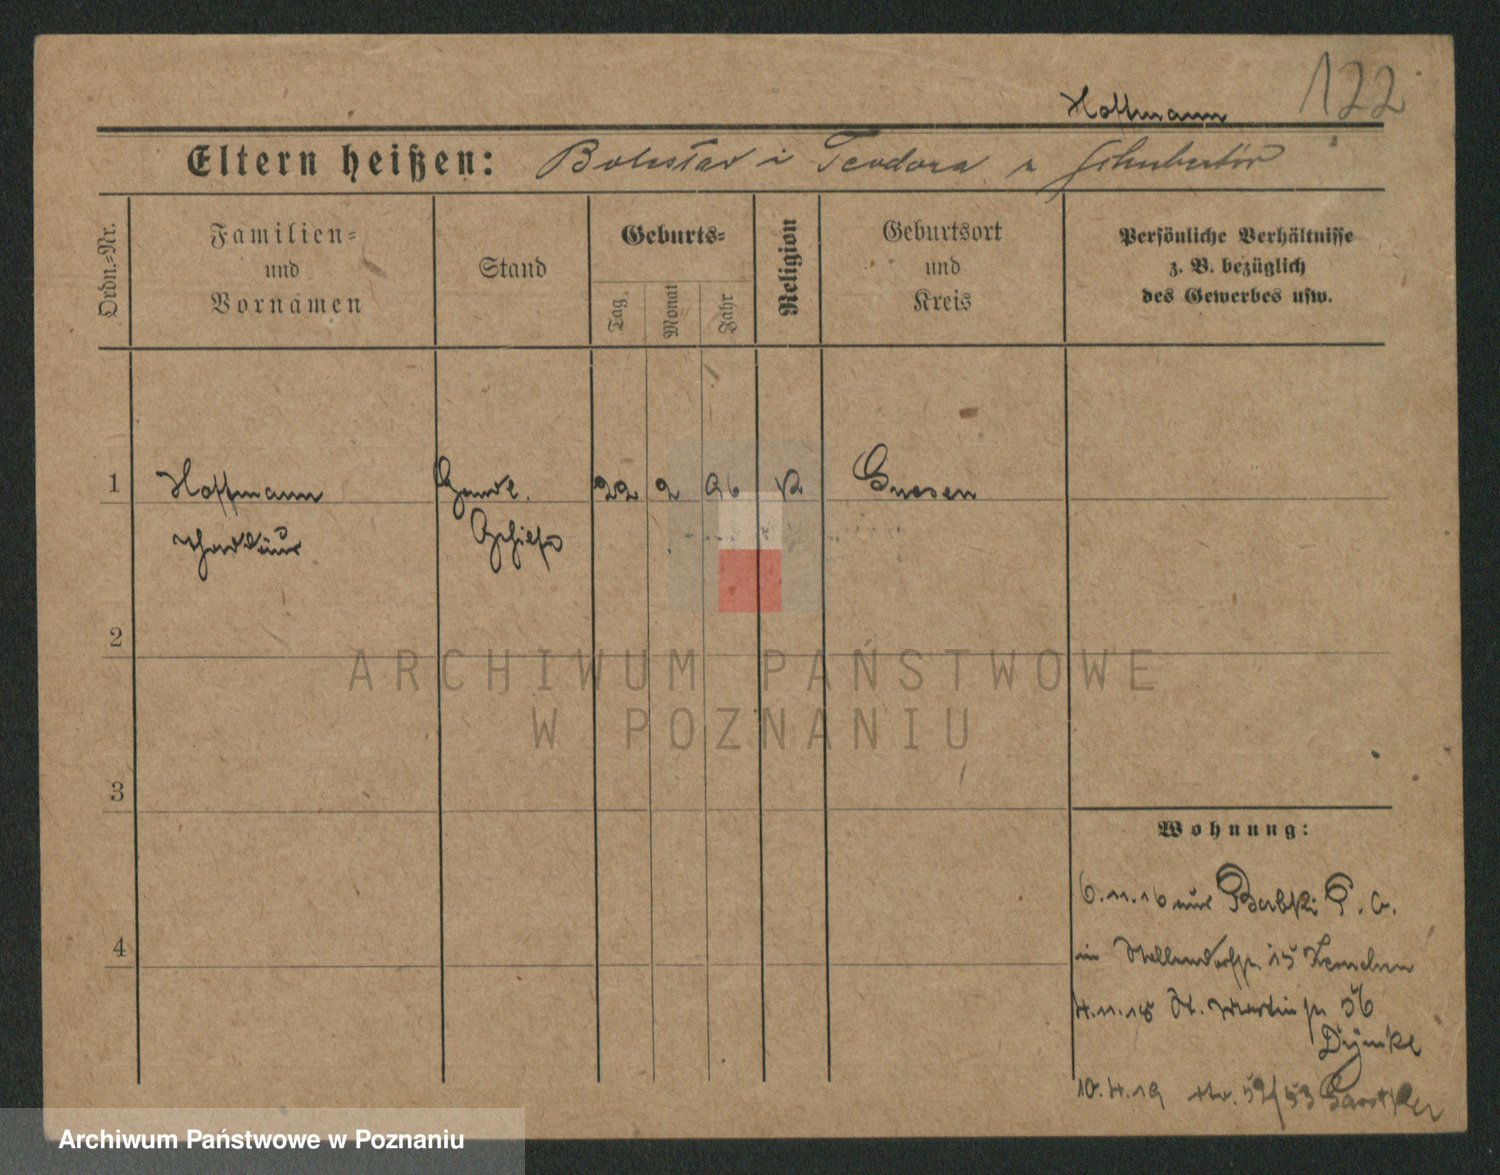 122
Hoffmann
Eltern heißen: Boleslav i Teodora z
Ordn.-Nr.
Familien-
und
Vornamen
Stand
Geburts-
Tag
Monat
Jahr
Religion
Geburtsort
und
Kreis
Persönliche Verhältnisse
z. B. bezüglich
des Gewerbes usw.
1 Hoffmann 22 2 96 K Gnesen
2
3
4
Wohnung:
6.11.16 aus
in 15
4.11.18 St. Martinstr 56
10.4.19 52/53
ARCHIWUM PAŃSTWOWE
W POZNANIU
Archiwum Państwowe w Poznaniu